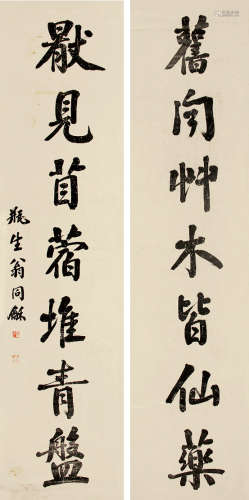 舊聞艸木皆仙藥
厭見苜蓿堆青盤
瓶生翁同龢